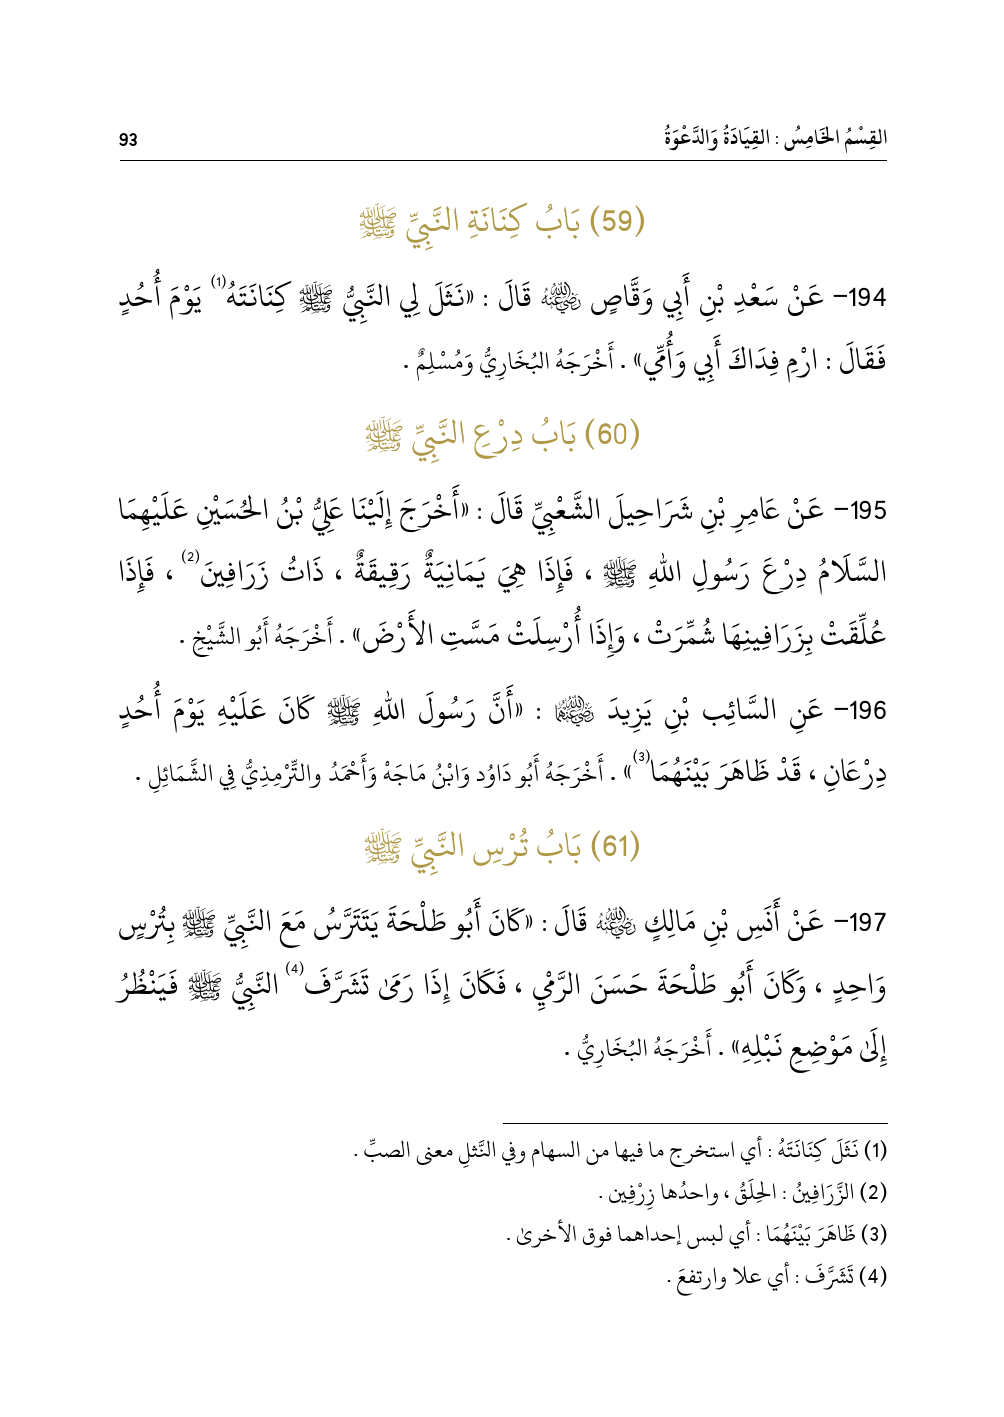 القِسْمُ الخَامِسُ : القِيَادَةُ وَالدَّعْوَةُ 93
(59) بَابُ كِنَانَةِ النَّبِيِّ ﷺ
194- عَنْ سَعْدِ بْنِ أَبِي وَقَّاصٍ رضي الله عنه قَالَ : «نَثَلَ لِي النَّبِيُّ ﷺ كِنَانَتَهُ(1) يَوْمَ أُحُدٍ
فَقَالَ : ارْمِ فِدَاكَ أَبِي وَأُمِّي» . أَخْرَجَهُ البُخَارِيُّ وَمُسْلِمٌ .
(60) بَابُ دِرْعِ النَّبِيِّ ﷺ
195- عَنْ عَامِرِ بْنِ شَرَاحِيلَ الشَّعْبِيِّ قَالَ : «أَخْرَجَ إِلَيْنَا عَلِيُّ بْنُ الحُسَيْنِ عَلَيْهِمَا
السَّلَامُ دِرْعَ رَسُولِ اللهِ ﷺ ، فَإِذَا هِيَ يَمَانِيَةٌ رَقِيقَةٌ ، ذَاتُ زَرَافِينَ(2) ، فَإِذَا
عُلِّقَتْ بِزَرَافِينِهَا شُمِّرَتْ ، وَإِذَا أُرْسِلَتْ مَسَّتِ الأَرْضَ» . أَخْرَجَهُ أَبُو الشَّيْخِ .
196- عَنِ السَّائِب بْنِ يَزِيدَ رضي الله عنهما : «أَنَّ رَسُولَ اللهِ ﷺ كَانَ عَلَيْهِ يَوْمَ أُحُدٍ
دِرْعَانِ ، قَدْ ظَاهَرَ بَيْنَهُمَا(3)» . أَخْرَجَهُ أَبُو دَاوُد وَابْنُ مَاجَهْ وَأَحْمَدُ والتِّرْمِذِيُّ فِي الشَّمَائِلِ .
(61) بَابُ تُرْسِ النَّبِيِّ ﷺ
197- عَنْ أَنَسِ بْنِ مَالِكٍ رضي الله عنه قَالَ : «كَانَ أَبُو طَلْحَةَ يَتَتَرَّسُ مَعَ النَّبِيِّ ﷺ بِتُرْسٍ
وَاحِدٍ ، وَكَانَ أَبُو طَلْحَةَ حَسَنَ الرَّمْيِ ، فَكَانَ إِذَا رَمَىٰ تَشَرَّفَ(4) النَّبِيُّ ﷺ فَيَنْظُرُ
إِلَىٰ مَوْضِعِ نَبْلِهِ» . أَخْرَجَهُ البُخَارِيُّ .
(1) نَثَلَ كِنَانَتَهُ : أي استخرج ما فيها من السهام وفي النَّثلِ معنى الصبِّ .
(2) الزَّرَافِينُ : الحِلَقُ ، واحدُها زِرْفِين .
(3) ظَاهَرَ بَيْنَهُمَا : أي لبس إحداهما فوق الأخرىٰ .
(4) تَشَرَّفَ : أي علا وارتفعَ .